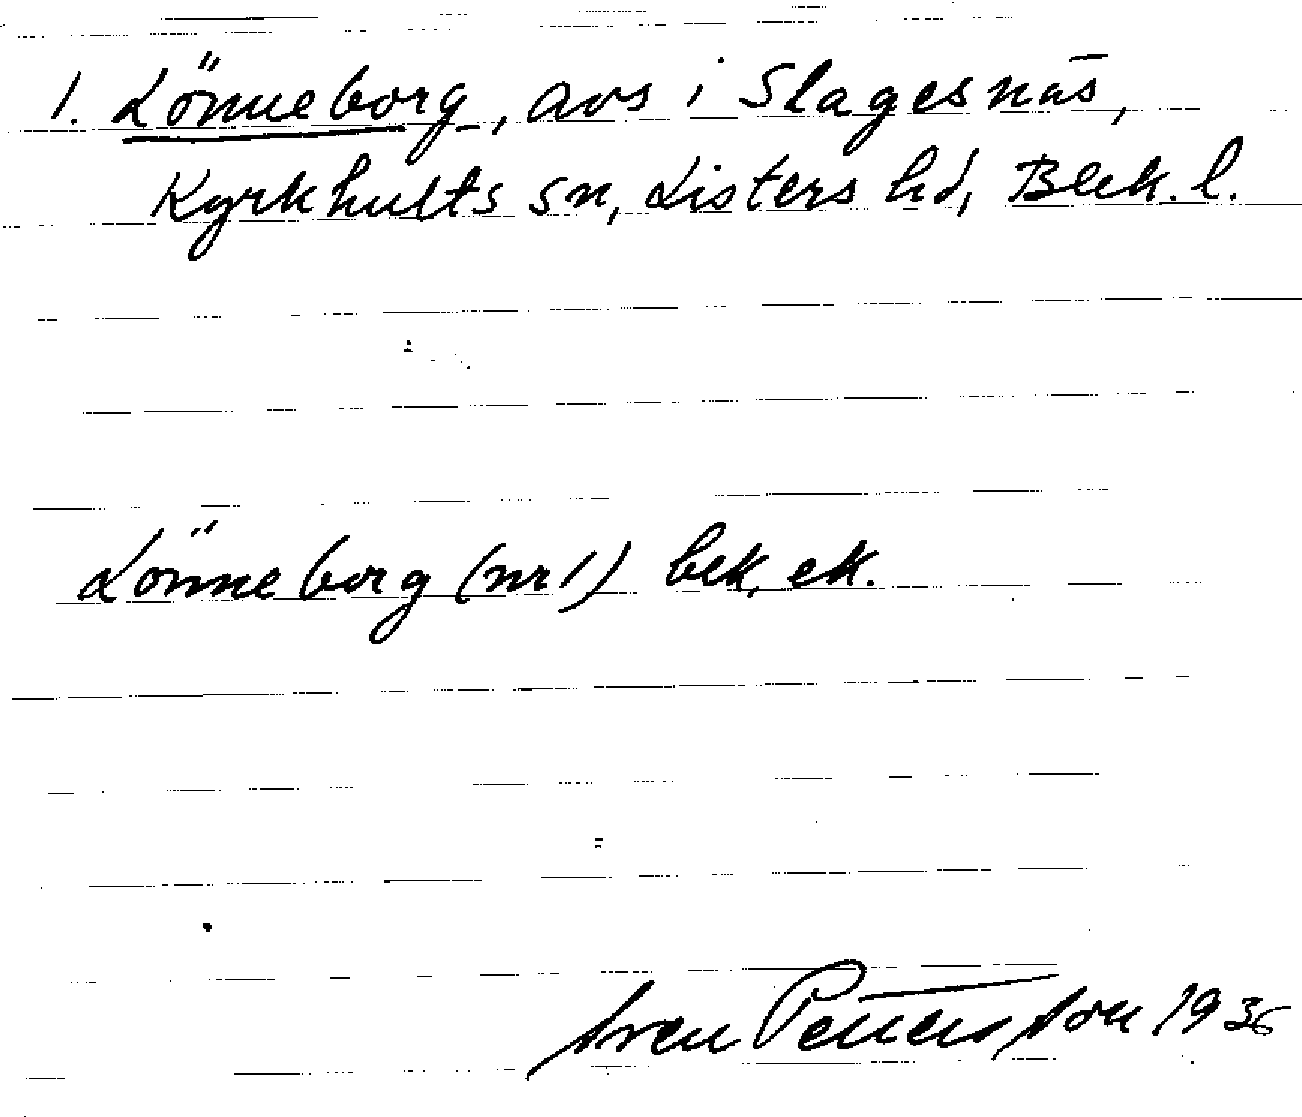 1. Lönneborg, avs i Slagesnäs,
Kyrkhults sn, Listers hd, Blek. l.
Lönneborg (nr 1) bek, ek.
Sven Petterson 1936